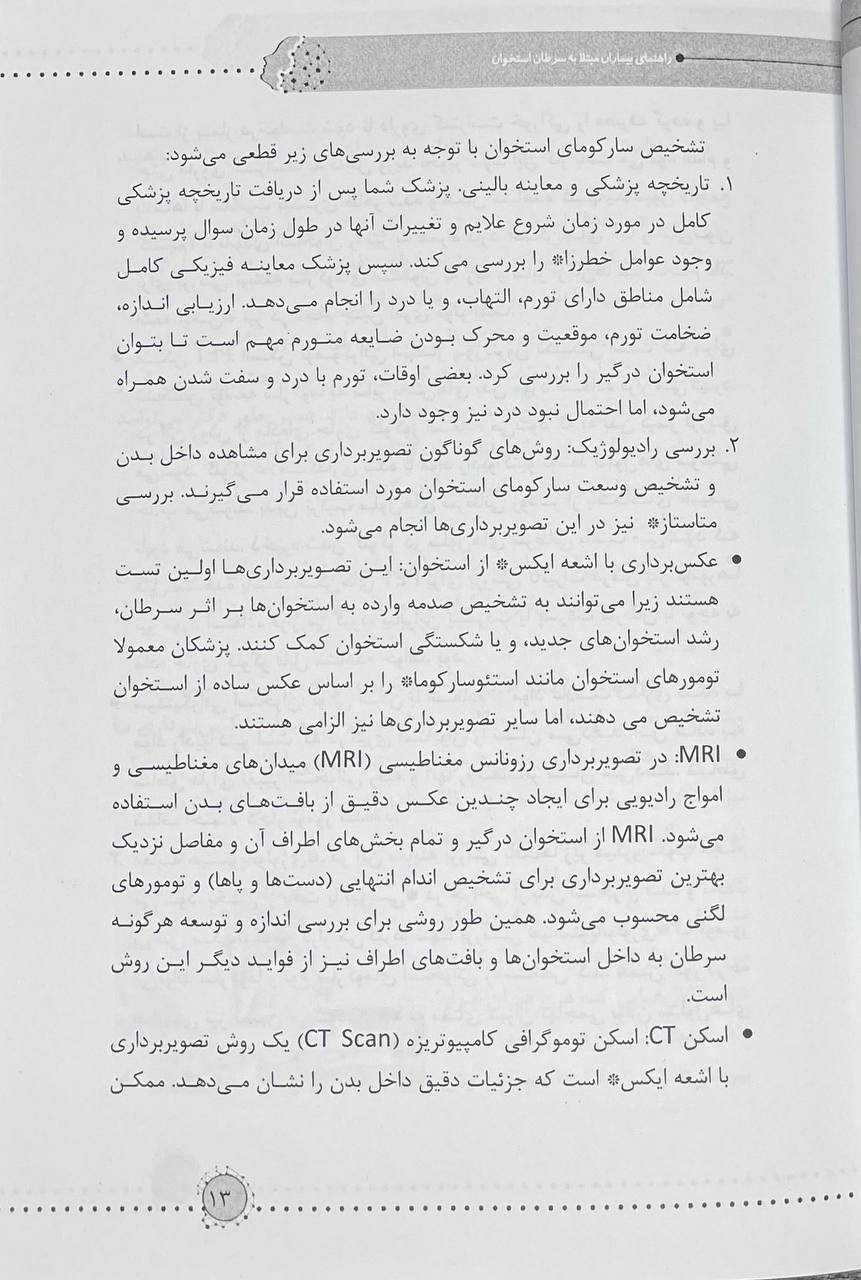 راهنمای بیماران مبتلا به سرطان استخوان
تشخیص سارکومای استخوان با توجه به بررسی‌های زیر قطعی می‌شود:
۱. تاریخچه پزشکی و معاینه بالینی. پزشک شما پس از دریافت تاریخچه پزشکی
کامل در مورد زمان شروع علایم و تغییرات آنها در طول زمان سوال پرسیده و
وجود عوامل خطرزا* را بررسی می‌کند. سپس پزشک معاینه فیزیکی کامل
شامل مناطق دارای تورم، التهاب، و یا درد را انجام می‌دهد. ارزیابی اندازه،
ضخامت تورم، موقعیت و محرک بودن ضایعه متورم مهم است تا بتوان
استخوان درگیر را بررسی کرد. بعضی اوقات، تورم با درد و سفت شدن همراه
می‌شود، اما احتمال نبود درد نیز وجود دارد.
۲. بررسی رادیولوژیک: روش‌های گوناگون تصویربرداری برای مشاهده داخل بدن
و تشخیص وسعت سارکومای استخوان مورد استفاده قرار می‌گیرند. بررسی
متاستاز* نیز در این تصویربرداری‌ها انجام می‌شود.
• عکس‌برداری با اشعه ایکس* از استخوان: این تصویربرداری‌ها اولین تست
هستند زیرا می‌توانند به تشخیص صدمه وارده به استخوان‌ها بر اثر سرطان،
رشد استخوان‌های جدید، و یا شکستگی استخوان کمک کنند. پزشکان معمولا
تومورهای استخوان مانند استئوسارکوما* را بر اساس عکس ساده از استخوان
تشخیص می دهند، اما سایر تصویربرداری‌ها نیز الزامی هستند.
• MRI: در تصویربرداری رزونانس مغناطیسی (MRI) میدان‌های مغناطیسی و
امواج رادیویی برای ایجاد چندین عکس دقیق از بافت‌های بدن استفاده
می‌شود. MRI از استخوان درگیر و تمام بخش‌های اطراف آن و مفاصل نزدیک
بهترین تصویربرداری برای تشخیص اندام انتهایی (دست‌ها و پاها) و تومورهای
لگنی محسوب می‌شود. همین طور روشی برای بررسی اندازه و توسعه هرگونه
سرطان به داخل استخوان‌ها و بافت‌های اطراف نیز از فواید دیگر این روش
است.
• اسکن CT: اسکن توموگرافی کامپیوتریزه (CT Scan) یک روش تصویربرداری
با اشعه ایکس* است که جزئیات دقیق داخل بدن را نشان می‌دهد. ممکن
۱۳